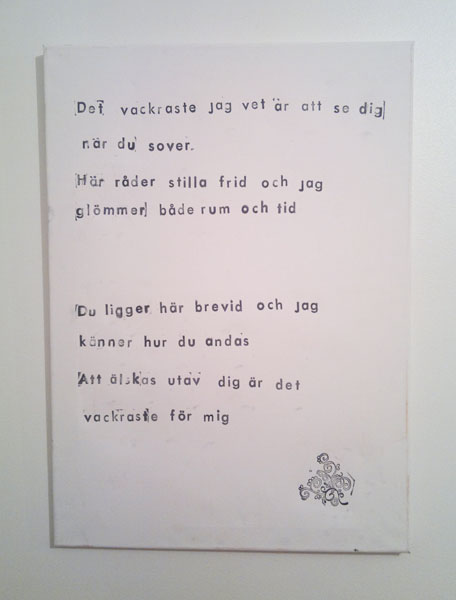 Det vackraste jag vet är att se dig
när du sover.
Här råder stilla frid och jag
glömmer både rum och tid
Du ligger här brevid och jag
känner hur du andas
Att älskas utav dig är det
vackraste för mig